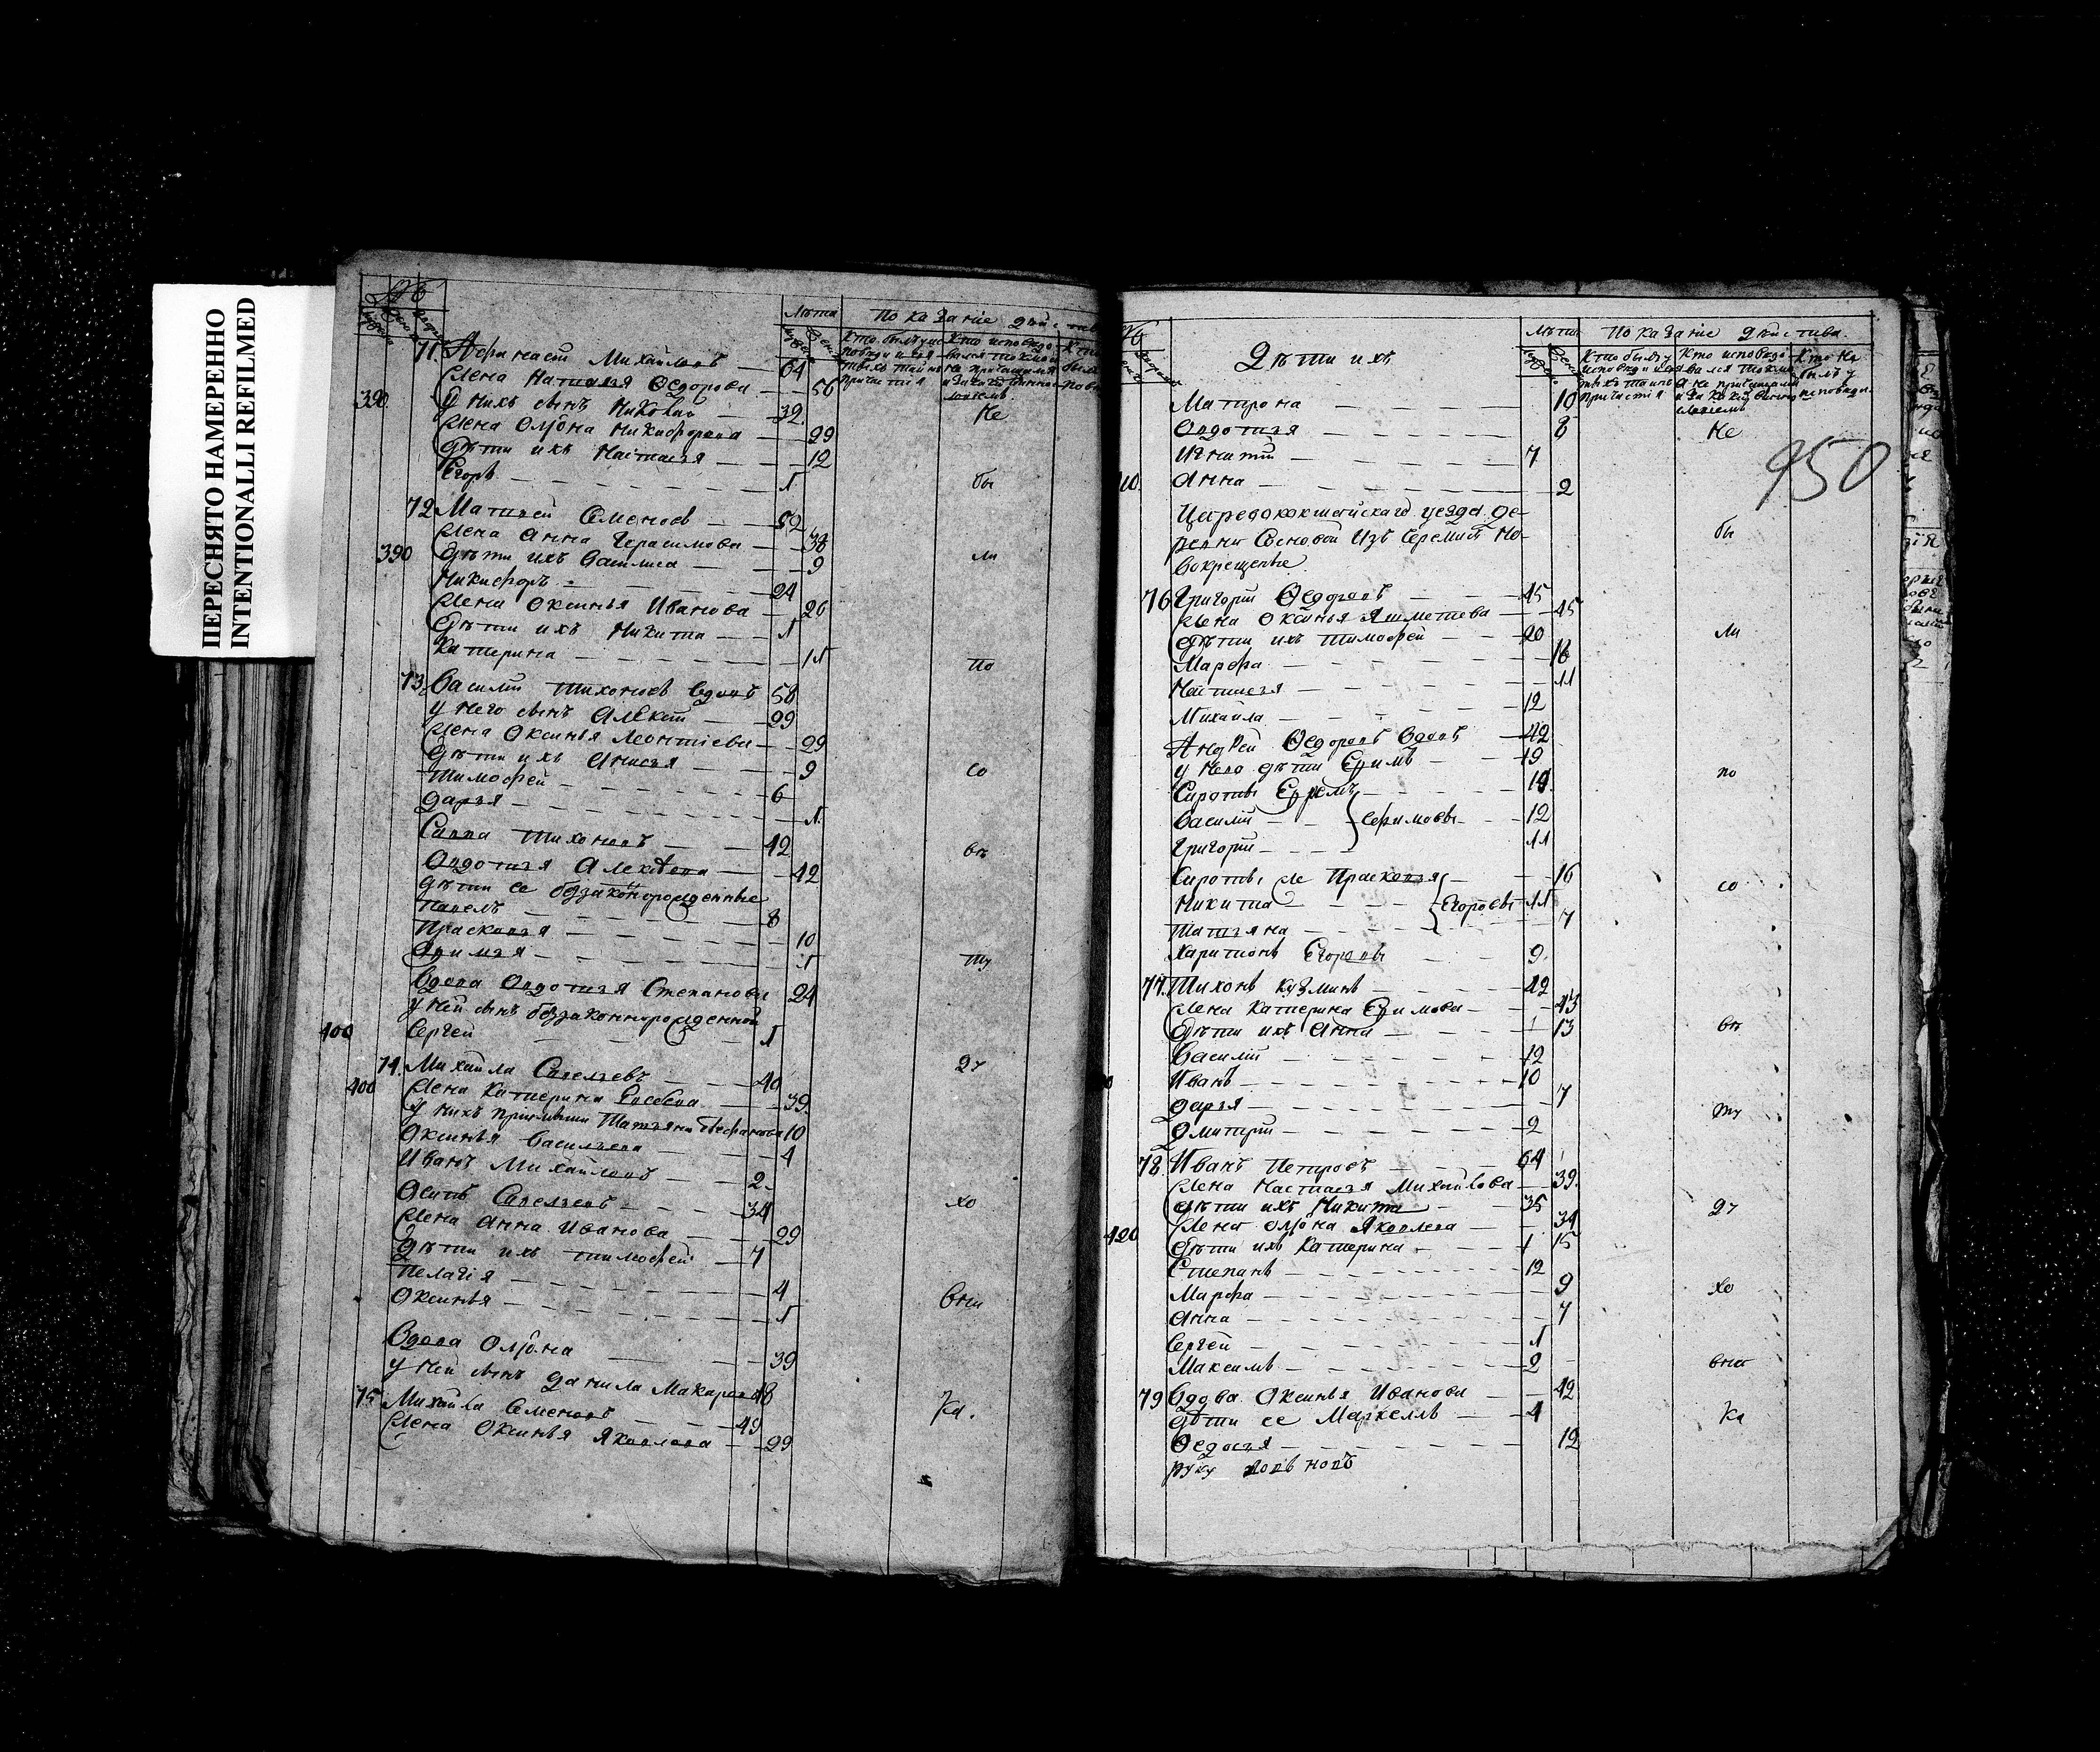 ПЕРЕСНЯТО НАМЕРЕННО
INTENTIONALLI REFILMED
Лѣта Показаніе дѣйства
71. Афанасей Михайловъ 64
Жена Наталья Ѳедорова 56
390 у нихъ сынъ Николай 32 Не
Жена Олѳона Никифорова 29
Дѣти ихъ Настасья 12
Егоръ 1 бы
72 Матвей Семеновъ 52
Жена Анна Герасимова 38
390 Дѣти ихъ Василиса 9 ли
Никифоръ 24
Жена Оксинья Иванова 26
Дѣти ихъ Никита 1
Катерина 11 По
73 Василій Тихоновъ вдовъ 58
у него сынъ Алексѣй 29
Жена Оксинья Леонтіева 29
Дѣти ихъ Анисья 9 Со
Тимофей 6
Дарья 1
Савва Тихоновъ 42 въ
Овдотья Алексѣева 42
Дѣти ее беззаконнорожденные
Павелъ 8
Прасковья 10
Афимья 1 ту
Вдова Овдотья Степанова 24
у ней сынъ беззаконнорожденной
400 Сергей 1
74. Михайла Савельевъ 40 2ч
400 Жена Катерина Глебова 39
у нихъ пріемыши Татьяна Стефанова 10
Оксинья Васильева 4
Иванъ Михайловъ 2
Осипъ Савельевъ 34 хо
Жена Анна Иванова 29
Дѣти ихъ Тимофей 7
Пелагія 4
Оксинья 1 вни
Вдова Олѳона 39
у ней сынъ Данила Макаровъ 18
75 Михайла Семеновъ 49 Ка.
Жена Оксинья Яковлева 29
Лѣта Показаніе дѣйства.
Дѣти ихъ
Матрона 10
Овдотья 8 Не
Игнатій 7
950
10. Анна 2
Царевококшайскаго уезда де-
ревни Сосновой Изъ Черемисъ но- бы
вокрещеные
76 Григорій Ѳедоровъ 45
Жена Оксинья Яшметева 45
Дѣти ихъ Тимофей 20 ли
Марфа 16
Настасья 11
Михайла 12
Андрей Ѳедоровъ вдовъ 42
у него дѣти Ефимъ 19 по
Сироты Ефремъ 14
Василій Ефимовы 12
Григорій 11
Сироты же Прасковья 16 со
Никита Егоровы 11
Татьяна 7
Харитонъ Егоровъ 9
77. Тихонъ Кузминъ 42
Жена Катерина Ефимова 43
Дѣти ихъ Анна 13 въ
Василій 12
Иванъ 10
Дарья 7 ту
Дмитрій 2
78. Иванъ Петровъ 64
Жена Настасья Михайлова 39
Дѣти ихъ Никита 35 2ч
Жена Олѳона Яковлева 34
420 Дѣти ихъ Катерина 15
Степанъ 12
Марфа 9 хо
Анна 7
Сергей 1
Максимъ 2 вни
79 Вдова Оксинья Иванова 42
дѣти ее Маркеллъ 4 Ка
Ѳедосья 12
руку